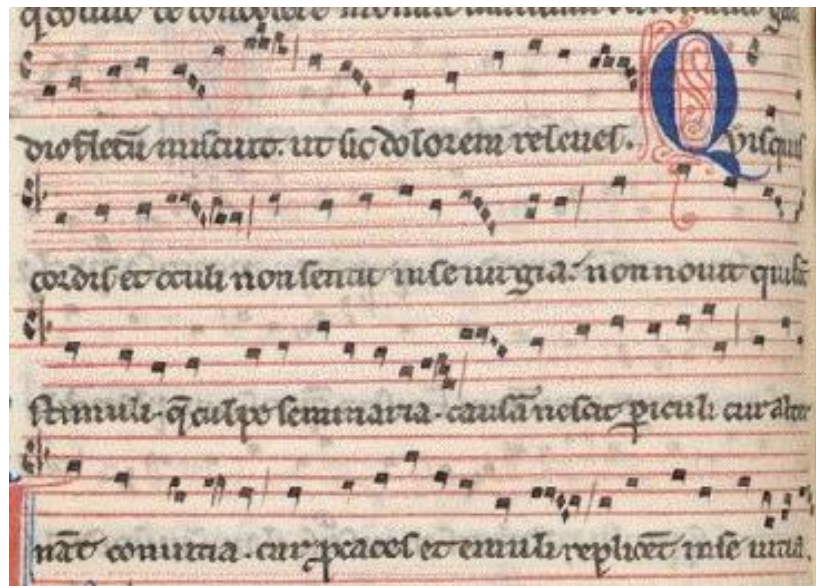 dio fletū miscuit. ut sic dolorem releues. Quisquis
cordis et oculi non sentit in se iurgia. non nouit qui sīt
stimuli. q̄ culpe seminaria. causā nescit piculi cur alter
nāt conuitia. cur pcaces et emuli replicēt in se uitia.